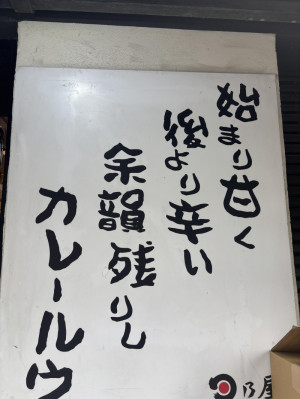 始まり甘く
後より辛い
余韻残りし
カレールウ
乃屋